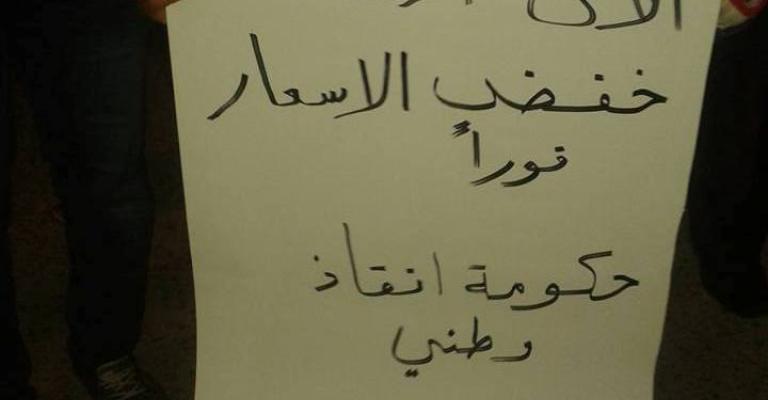 الآن
خفض الاسعار
فوراً
حكومة انقاذ
وطني